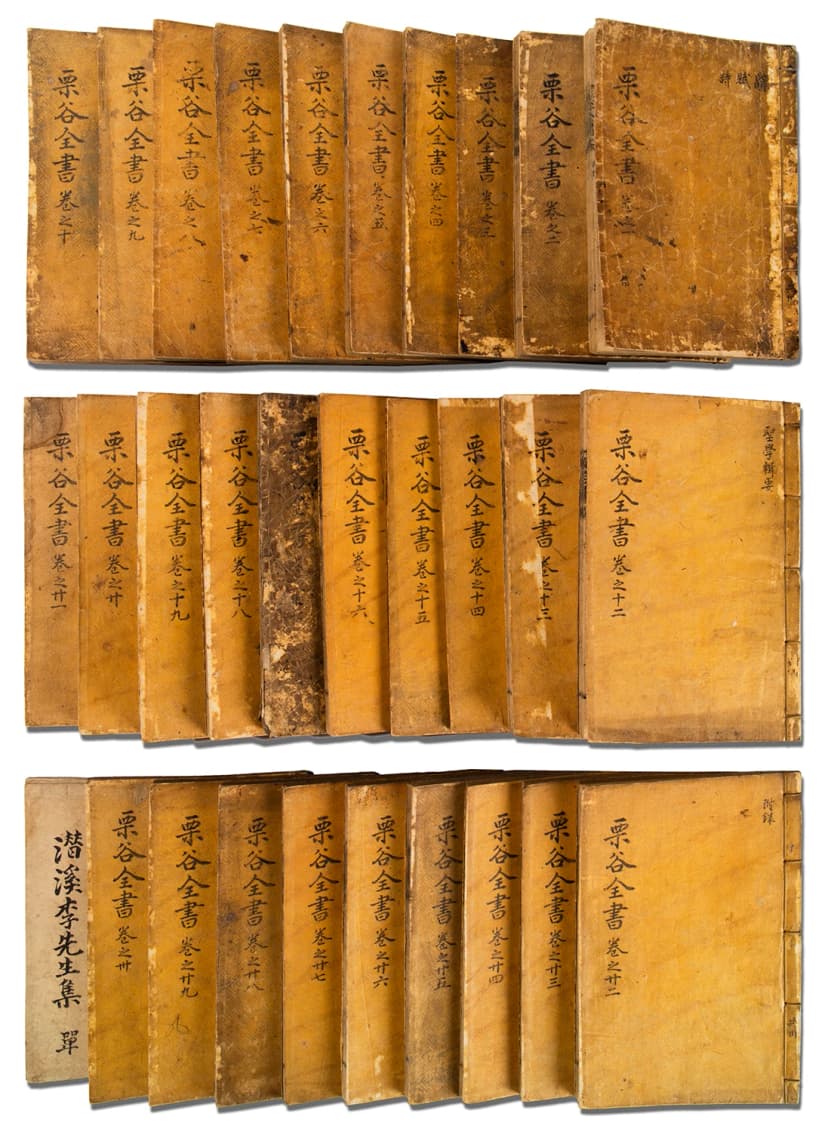 辭賦詩
栗谷全書 卷之一
栗谷全書 卷之二
栗谷全書 卷之三
栗谷全書 卷之四
栗谷全書 卷之五
栗谷全書 卷之六
栗谷全書 卷之七
栗谷全書 卷之八
栗谷全書 卷之九
栗谷全書 卷之十
聖學輯要
栗谷全書 卷之十二
栗谷全書 卷之十三
栗谷全書 卷之十四
栗谷全書 卷之十五
栗谷全書 卷之十六
栗谷全書 卷之十八
栗谷全書 卷之十九
栗谷全書 卷之廿
栗谷全書 卷之廿一
附錄
栗谷全書 卷之廿二
栗谷全書 卷之廿三
栗谷全書 卷之廿四
栗谷全書 卷之廿五
栗谷全書 卷之廿六
栗谷全書 卷之廿七
栗谷全書 卷之廿八
栗谷全書 卷之廿九
栗谷全書 卷之卅
潛溪李先生集 單